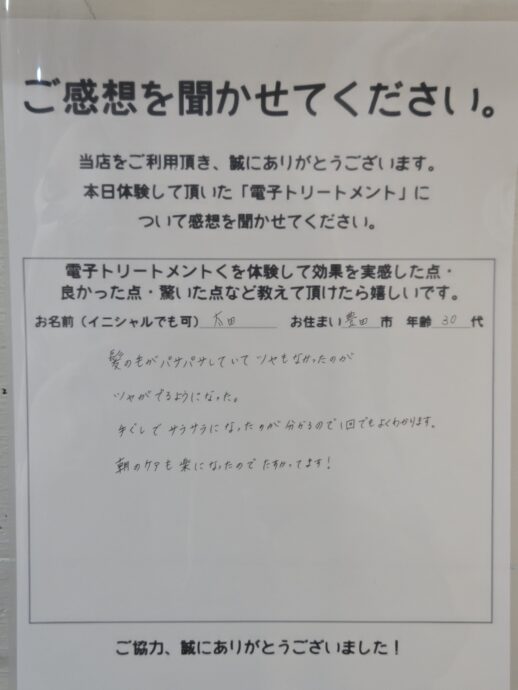 ご感想を聞かせてください。
当店をご利用頂き、誠にありがとうございます。
本日体験して頂いた「電子トリートメント」に
ついて感想を聞かせてください。
電子トリートメントくを体験して効果を実感した点・
良かった点・驚いた点など教えて頂けたら嬉しいです。
お名前（イニシャルでも可） 太田 お住まい 豊田 市 年齢 30 代
髪の毛がパサパサしていてツヤもなかったのが
ツヤがでるようになった。
手ぐしでサラサラになったのが分かるので1回でもよくわかります。
朝のケアも楽になったのでたすかってます！
ご協力、誠にありがとうございました！